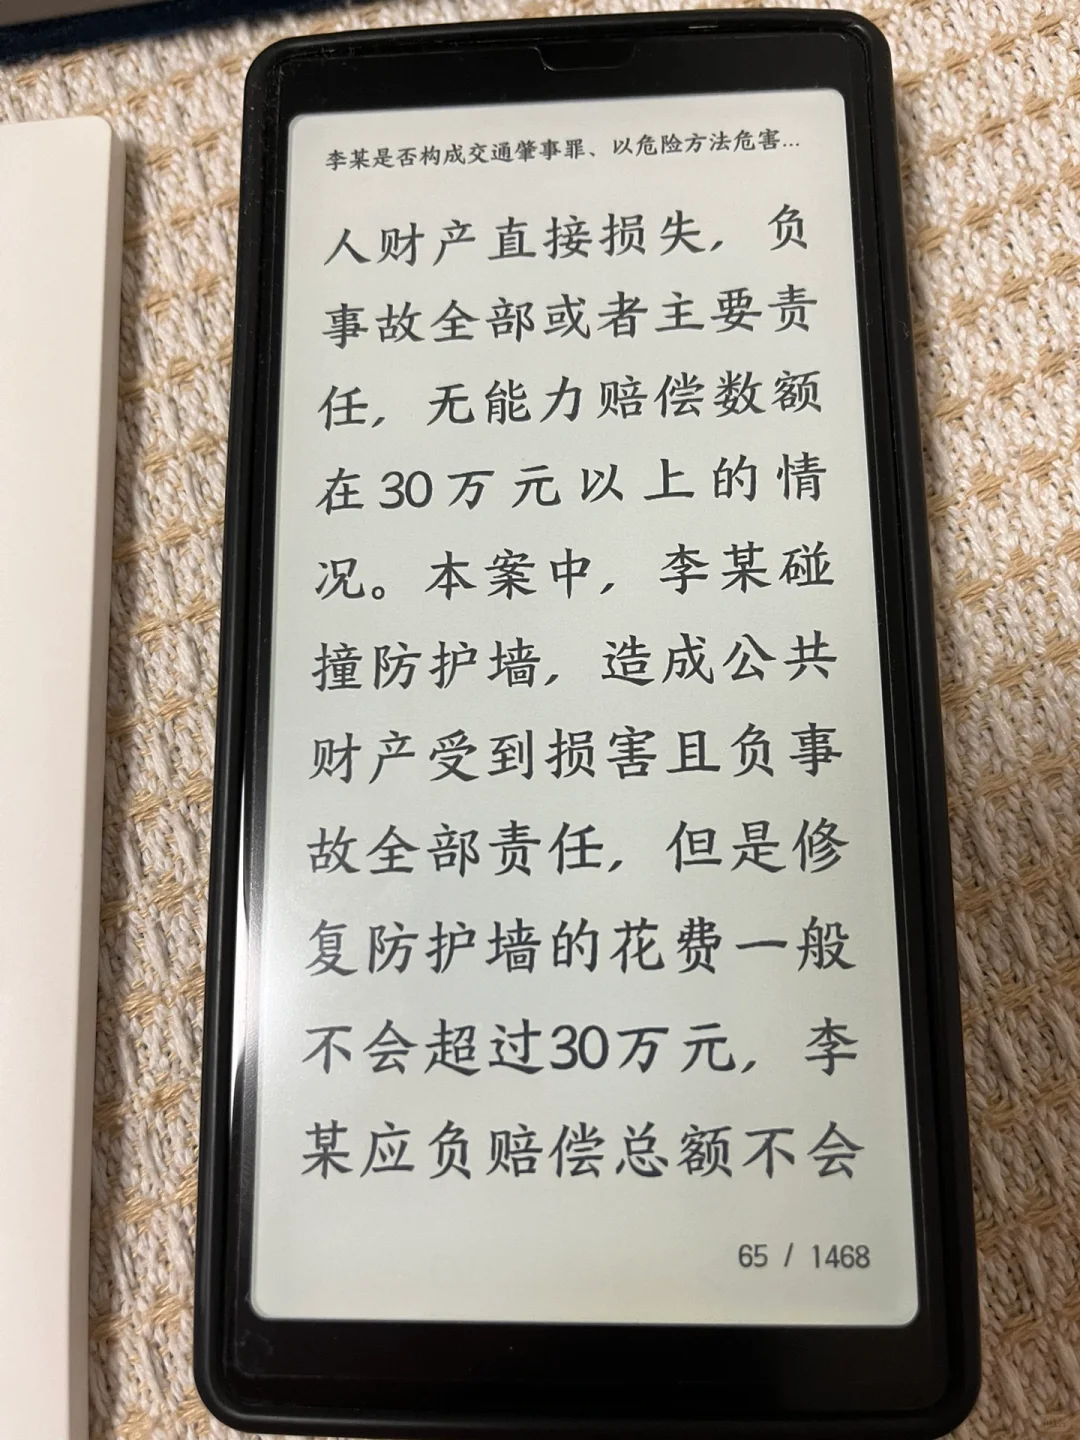 李某是否构成交通肇事罪、以危险方法危害...
人财产直接损失，负
事故全部或者主要责
任，无能力赔偿数额
在30万元以上的情
况。本案中，李某碰
撞防护墙，造成公共
财产受到损害且负事
故全部责任，但是修
复防护墙的花费一般
不会超过30万元，李
某应负赔偿总额不会
65 / 1468